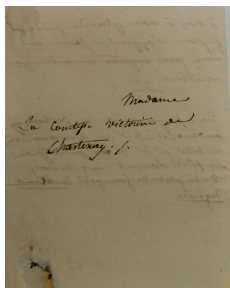 Madame
La comtesse victorine de
Chastenay./.